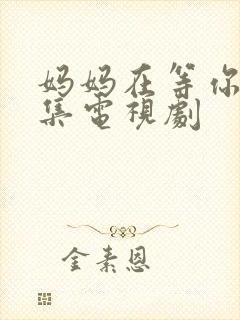 妈妈在等你
集電視劇
金素恩